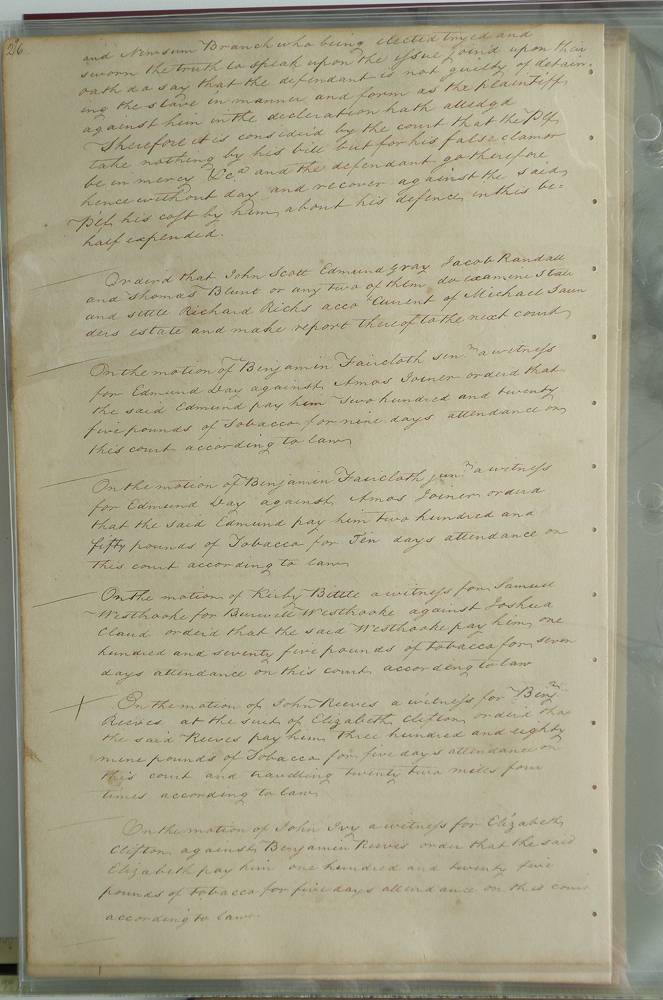 26
and Newsum Branch who being elected tryed and
sworn the truth to speak upon the issue joind upon their
oath do say that the defendant is not guilty of detain-
ing the slave in manner and form as the plaintiff
against him in the declaration hath alledgd
Therefore it is considerd by the court that the Plf
take nothing by his bill but for his false clamor
be in mercy &c.a and the defendant go therefore
hence without day and recover against the said
Plf his cost by him about his defence in this be=
half expended.
Orderd that John Scott Edmund Gray Jacob Randall
and Thomas Blunt or any two of them do examine state
and settle Richard Ricks acco.t Current of Michael Saun
ders estate and make report thereof to the next court
On the motion of Benjamin Faircloth sen.r a witness
for Edmund Day against Amos Joiner orderd that
the said Edmund pay him two hundred and twenty
five pounds of Tobacco for nine days attendance on
this court according to law
On the motion of Benjamin Faircloth jun.r a witness
for Edmund Day against Amos Joiner orderd
that the said Edmund pay him two hundred and
fifty pounds of Tobacco for Ten days attendance on
this court according to law
On the motion of Kirby Bittle a witness for Samuel
Westbrooke for Burwell Westbrooke against Joshua
Claud orderd that the said Westbrooke pay him one
hundred and seventy five pounds of tobacco for seven
days attendance on this court according to law
On the motion of John Reeves a witness for Benj.n
Reeves at the suit of Elizabeth Clifton orderd that
the said Reeves pay him three hundred and eighty
nine pounds of Tobacco for five days attendance on
this court and travelling twenty two miles four
times according to law
On the motion of John Ivy a witness for Elizabeth
Clifton against Benjamin Reeves order that the said
Elizabeth pay him one hundred and twenty five
pounds of tobacco for five days attendance on this court
according to law